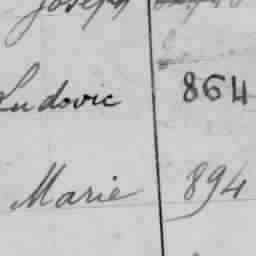 Joseph
Ludovic 864
Marie 894